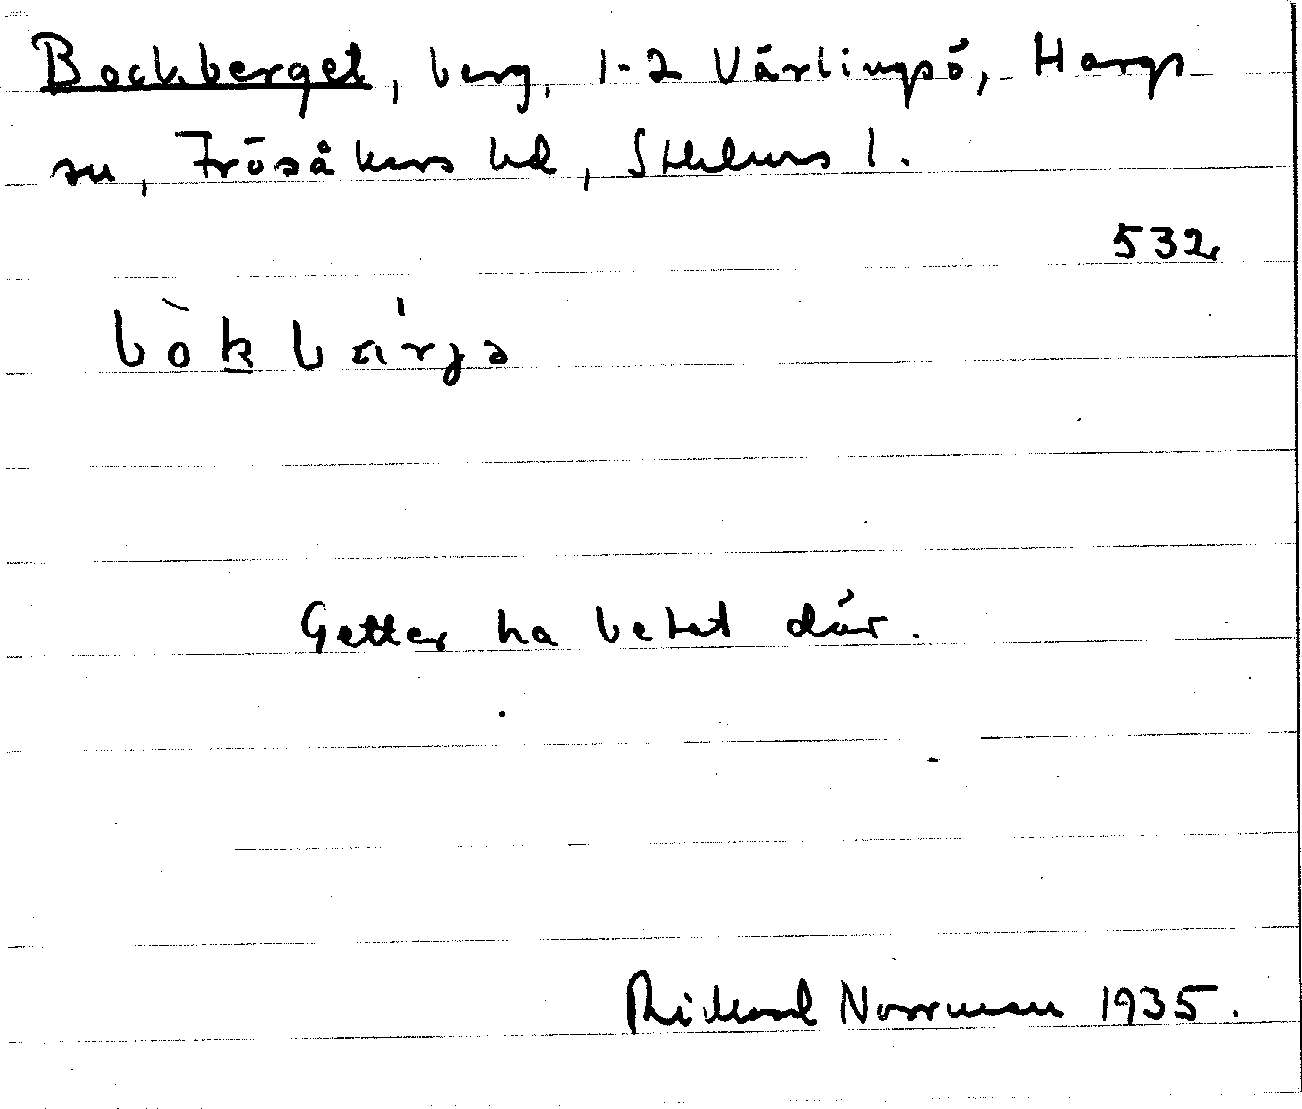 Bockberget, berg, 1-2 Värlingsö, Hargs
sn, Frösåkers hd, Sthlms l.
532
bòkbárjə
Getter ha betet där.
Rickard Norrman 1935.